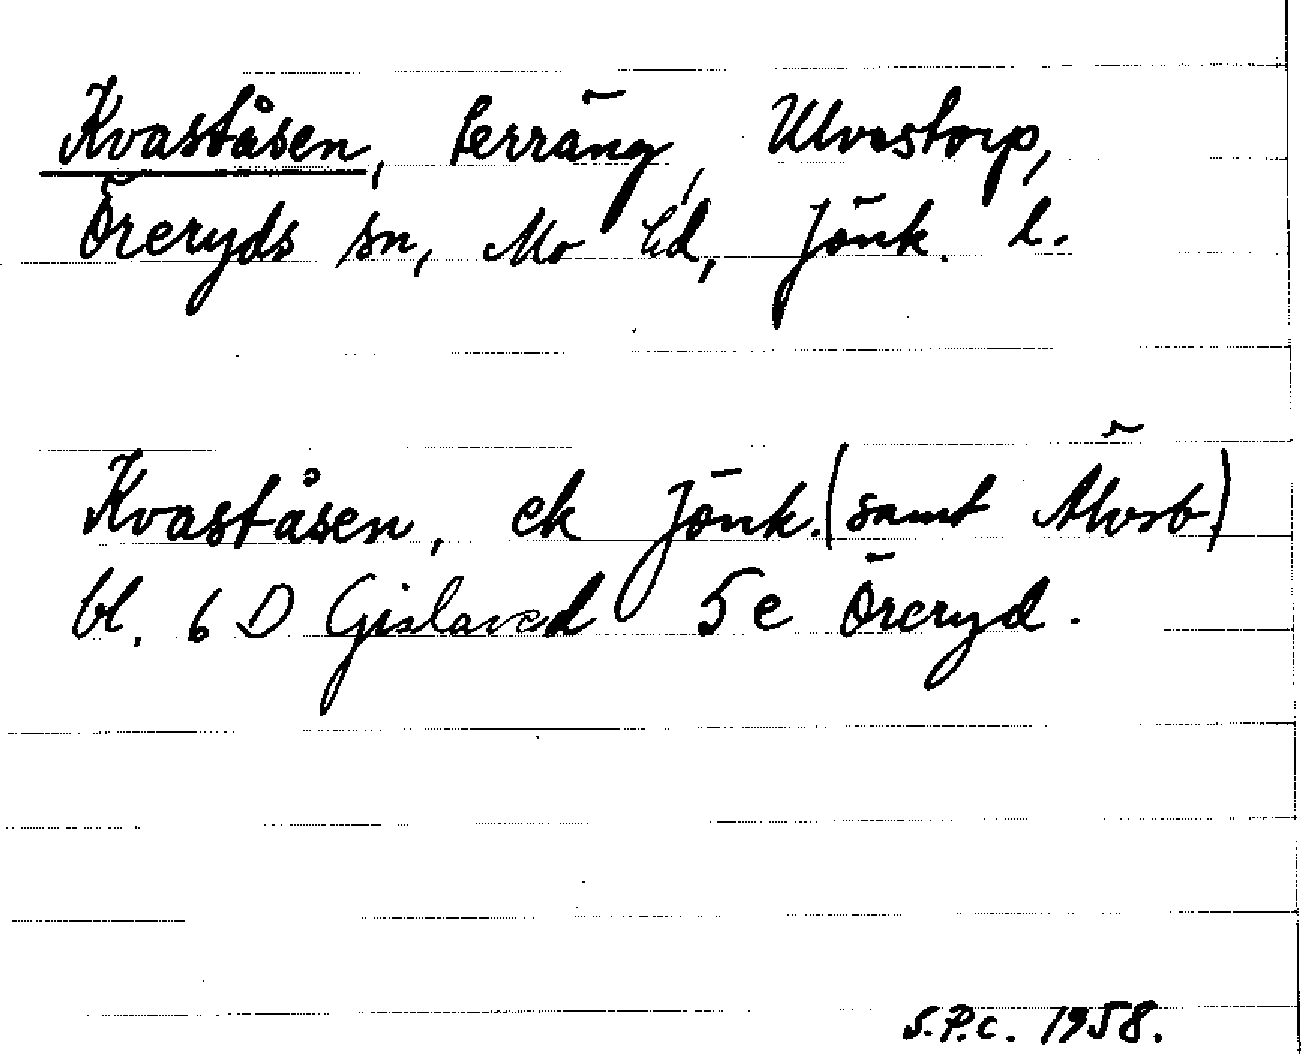 Kvaståsen, terräng, Ulvestorp,
Öreryds sn, Mo hd, Jönk. l.
Kvaståsen, ek Jönk. (samt Älvsb.)
bl. 6 D Gislaved 5 e Öreryd.
S.P.C. 1958.